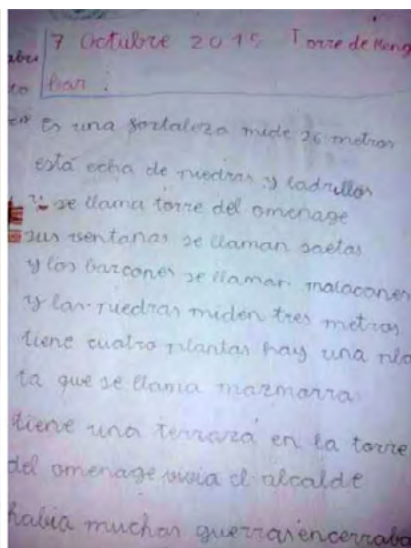 7 octubre 2015 Torre de Meng
bar.
Es una fortaleza mide 26 metros
está echa de piedras y ladrillos
y se llama torre del omenage
sus ventanas se llaman saetas
y los barcones se llaman malacones
y las piedras miden tres metros
tiene cuatro plantas hay una pla
ta que se llama mazmorra
tiene una terraza en la torre
del omenage vivia el alcalde
habia muchas guerras encerraba